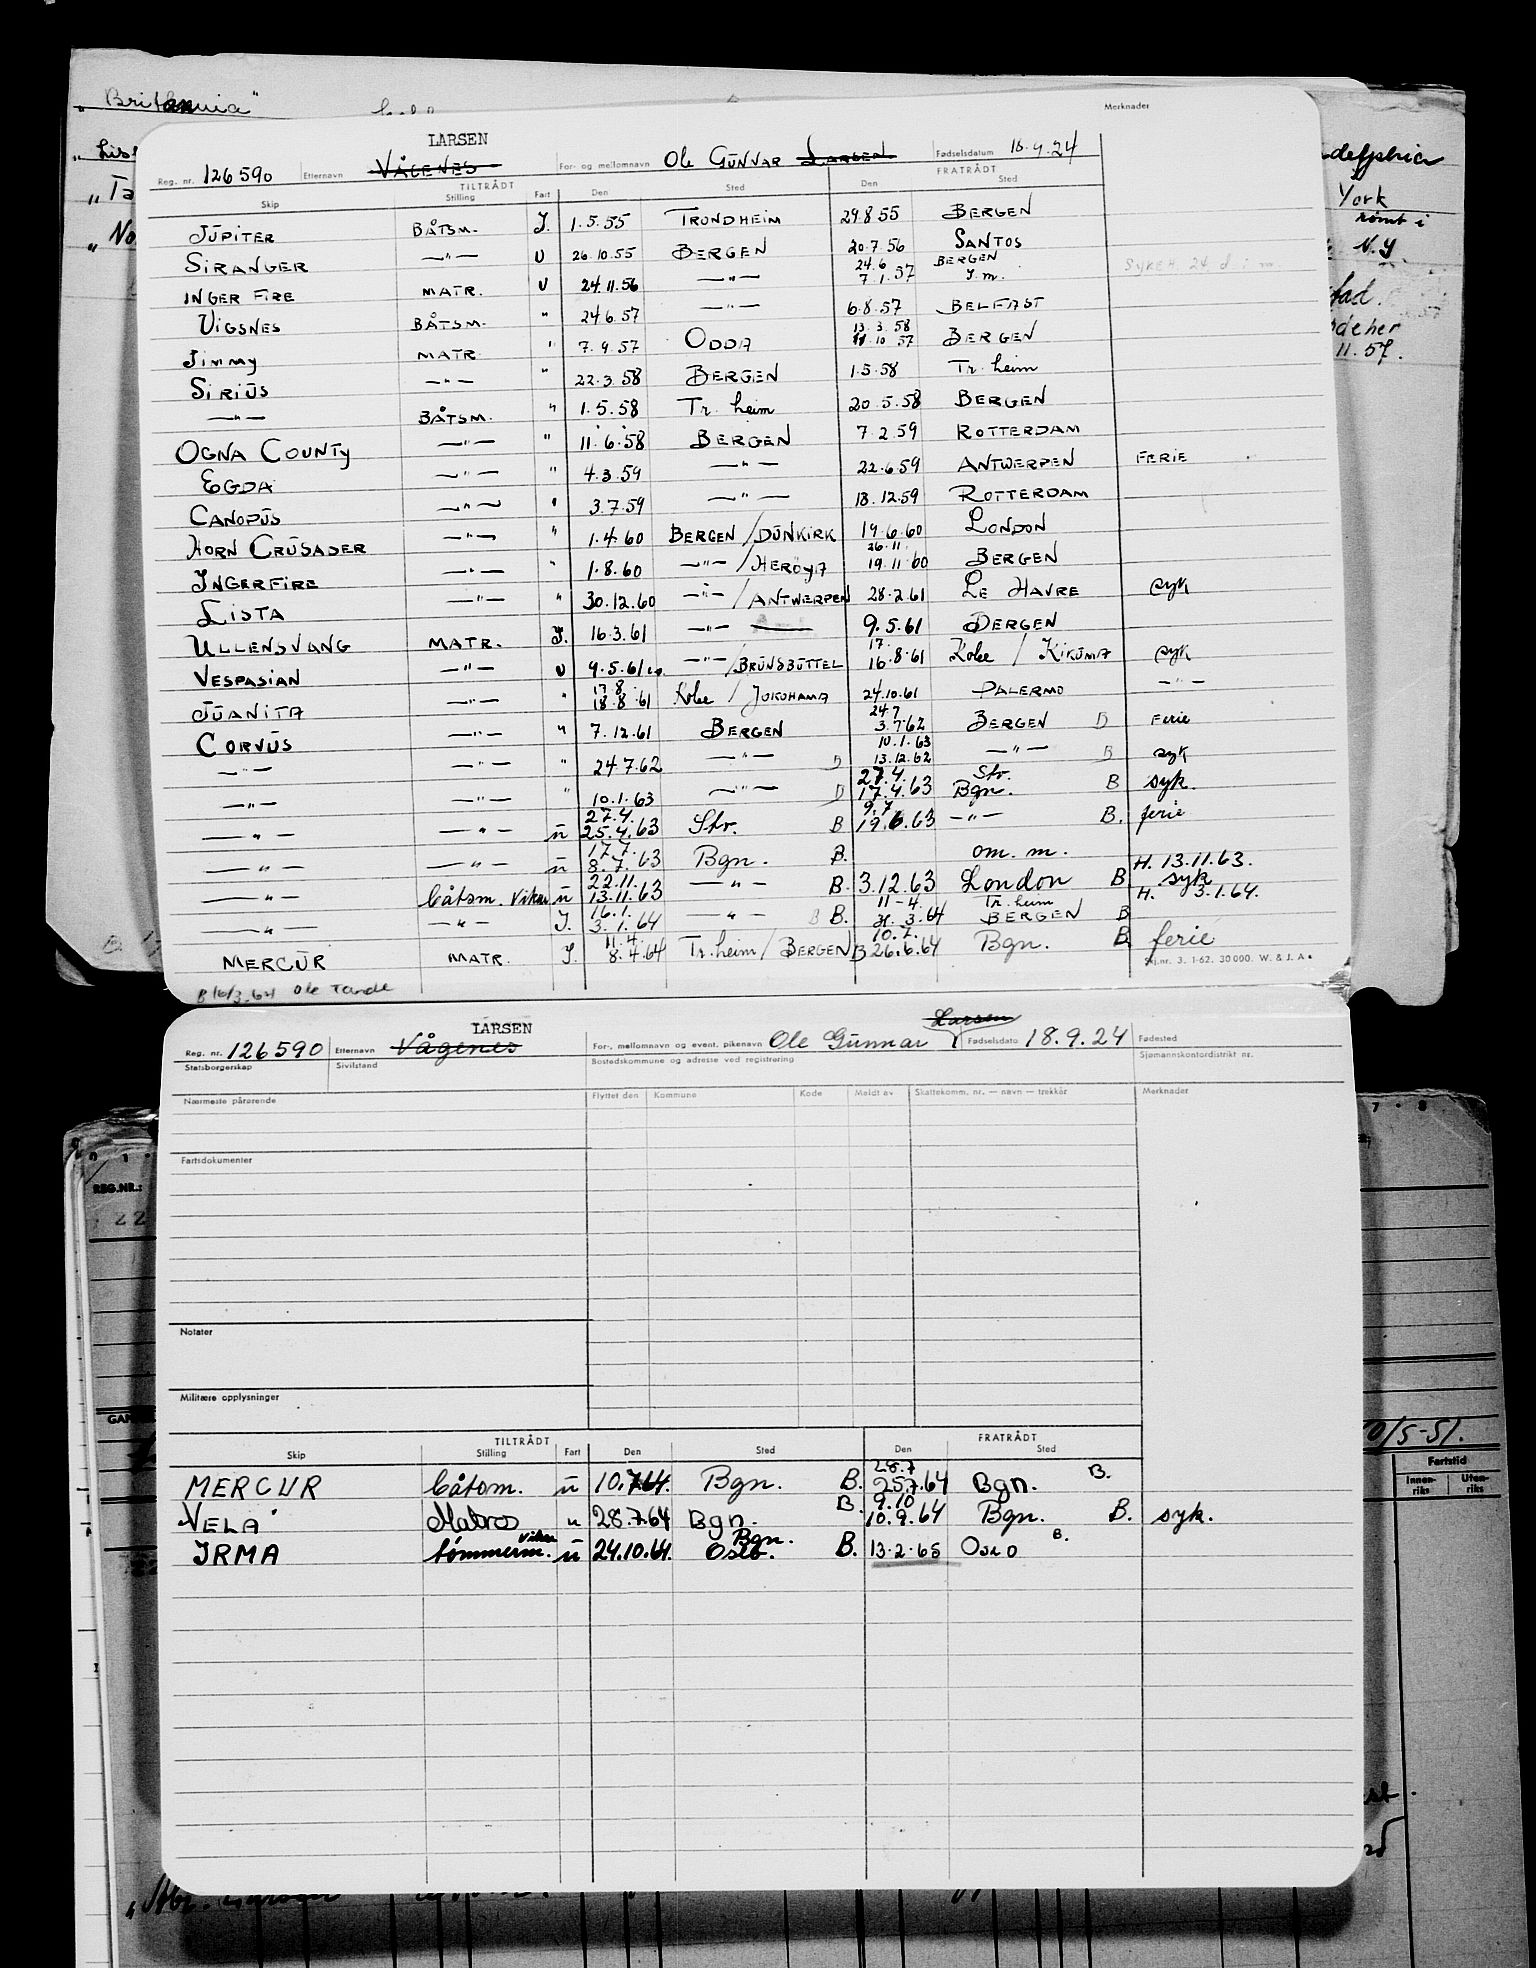 "Britannia"
Merknader
LARSEN
Reg. nr. 126590 Etternavn VÅGENES For- og mellomnavn Ole GUNNAR LARSEN Fødselsdatum 18.9.24
TILTRÅDT FRATRÅDT
Skip Stilling Fart Den Sted Den Sted
JUPITER BÅTSM. J. 1.5.55 TRONDHEIM 29.8.55 BERGEN
SIRANGER —"— U 26.10.55 BERGEN 20.7.56 SANTOS
24.6 BERGEN
INGER FIRE MATR. U 24.11.56 —"— 7.1.57 J.m.
VIGSNES BÅTSM. " 24.6.57 —"— 6.8.57 BELFAST
13.3.58
JIMMY MATR " 7.9.57 ODDA 11.10 57 BERGEN
SIRIUS —"— " 22.3.58 BERGEN 1.5.58 Tr. heim
—"— BÅTSM. " 1.5.58 Tr. heim 20.5.58 BERGEN
OGNA COUNTY —"— " 11.6.58 BERGEN 7.2.59 ROTTERDAM
EGDA —"— " 4.3.59 —"— 22.6.59 ANTWERPEN FERIE
CANOPUS —"— " 3.7.59 —"— 18.12.59 ROTTERDAM
HORN CRUSADER —"— " 1.4.60 BERGEN / DUNKIRK 19.6.60 LONDON
26.11.
INGERFIRE —"— " 1.8.60 —"— / HERÖYA 19.11.60 BERGEN
LISTA —"— " 30.12.60 —"— / ANTWERPEN 28.2.61 LE HAVRE syk
ULLENSVANG MATR. J. 16.3.61 —"— 9.5.61 BERGEN
17.
VESPASIAN —"— U 9.5.61 —"— / BRUNSBUTTEL 16.8.61 Kobe / KIKUMA syk
17.8.
JUANITA —"— " 18.8.61 Kobe / JOKOHAMA 24.10.61 PALERMO —"—
24.7
CORVUS —"— " 7.12.61 BERGEN 3.7.62 BERGEN B Ferie
10.1.63
—"— —"— " 24.7.62 —"— B 13.12.62 —"— B syk
27.4. Stv.
—"— —"— " 10.1.63 —"— B 17.4.63 Bgn. B syk.
27.4. 9.7.
—"— —"— u 25.4.63 Stv. B 19.6.63 —"— B. ferie
17.7.
—"— —"— u 8.7.63 Bgn. B. om. m. H. 13.11.63.
22.11. syk
—"— båtsm. vikar u 13.11.63 —"— B. 3.12.63 London B H. 3.1.64.
16.1. 11-4. Tr. heim
—"— —"— J. 3.1.64 —"— B B. 31.3.64 BERGEN B
11.4. 10.7.
MERCUR MATR. J. 8.4.64 Tr.heim / BERGEN B 26.6.64 Bgn. B ferie
Bj.nr. 3. 1-62. 30000. W. & J. A.
B 16/3.64 Ole Tande
York
rømt i
N.Y.
11.57.
LARSEN Larsen
Reg. nr. 126590 Etternavn Vågenes For-, mellomnavn og event. pikenavn Ole Gunnar Fødselsdato 18.9.24 Fødested
Statsborgerskap Sivilstand Bostedskommune og adresse ved registrering Sjømannskontordistrikt nr.
Nærmeste pårørende Flyttet den Kommune Kode Meldt av Skattekomm. nr. — navn — trekkår Merknader
REG.NR.:
22
Fartsdokumenter
Notater
Militære opplysninger
TILTRÅDT FRATRÅDT
Skip Stilling Fart Den Sted Den Sted
28.7
MERCUR båtsm. u 10.7.64. Bgn. B. 25.7.64 Bgn. B.
9.10
VELA Matros u 28.7.64 Bgn. B. 10.9.64 Bgn. B. syk.
vikar Bgn.
IRMA tømmerm. u 24.10.64. Oslo. B. 13.2.65 Oslo B.
0/5-51.
Fartstid
Innen-riks Uten-riks